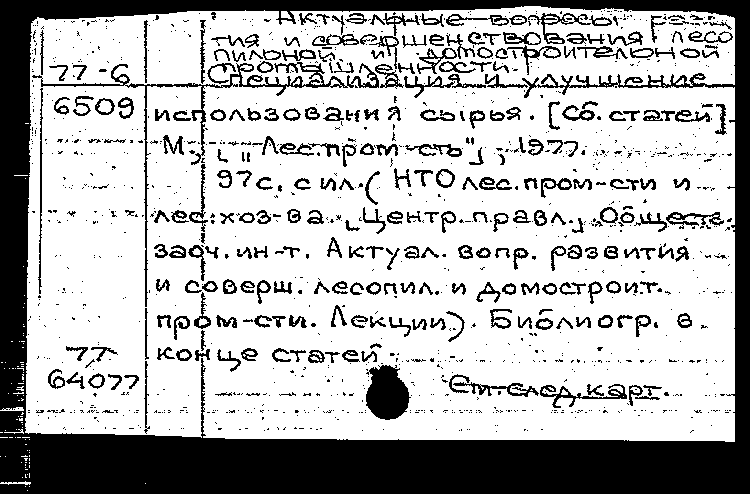 Актуальные вопросы разви
тия и совершенствования лесо
пильной и домостроительной
77-6 промышленности.
Специализация и улучшение
6509 использования сырья. [Сб. статей].
М., [„Лес. пром-сть"], 1977.
97 с. с ил. (НТО лес. пром-сти и
лес. хоз-ва. [Центр. правл.] Обществ.
заоч. ин-т. Актуал. вопр. развития
и соверш. лесопил. и домостроит.
пром-сти. Лекции). Библиогр. в
77 конце статей.
64077 См. след. карт.